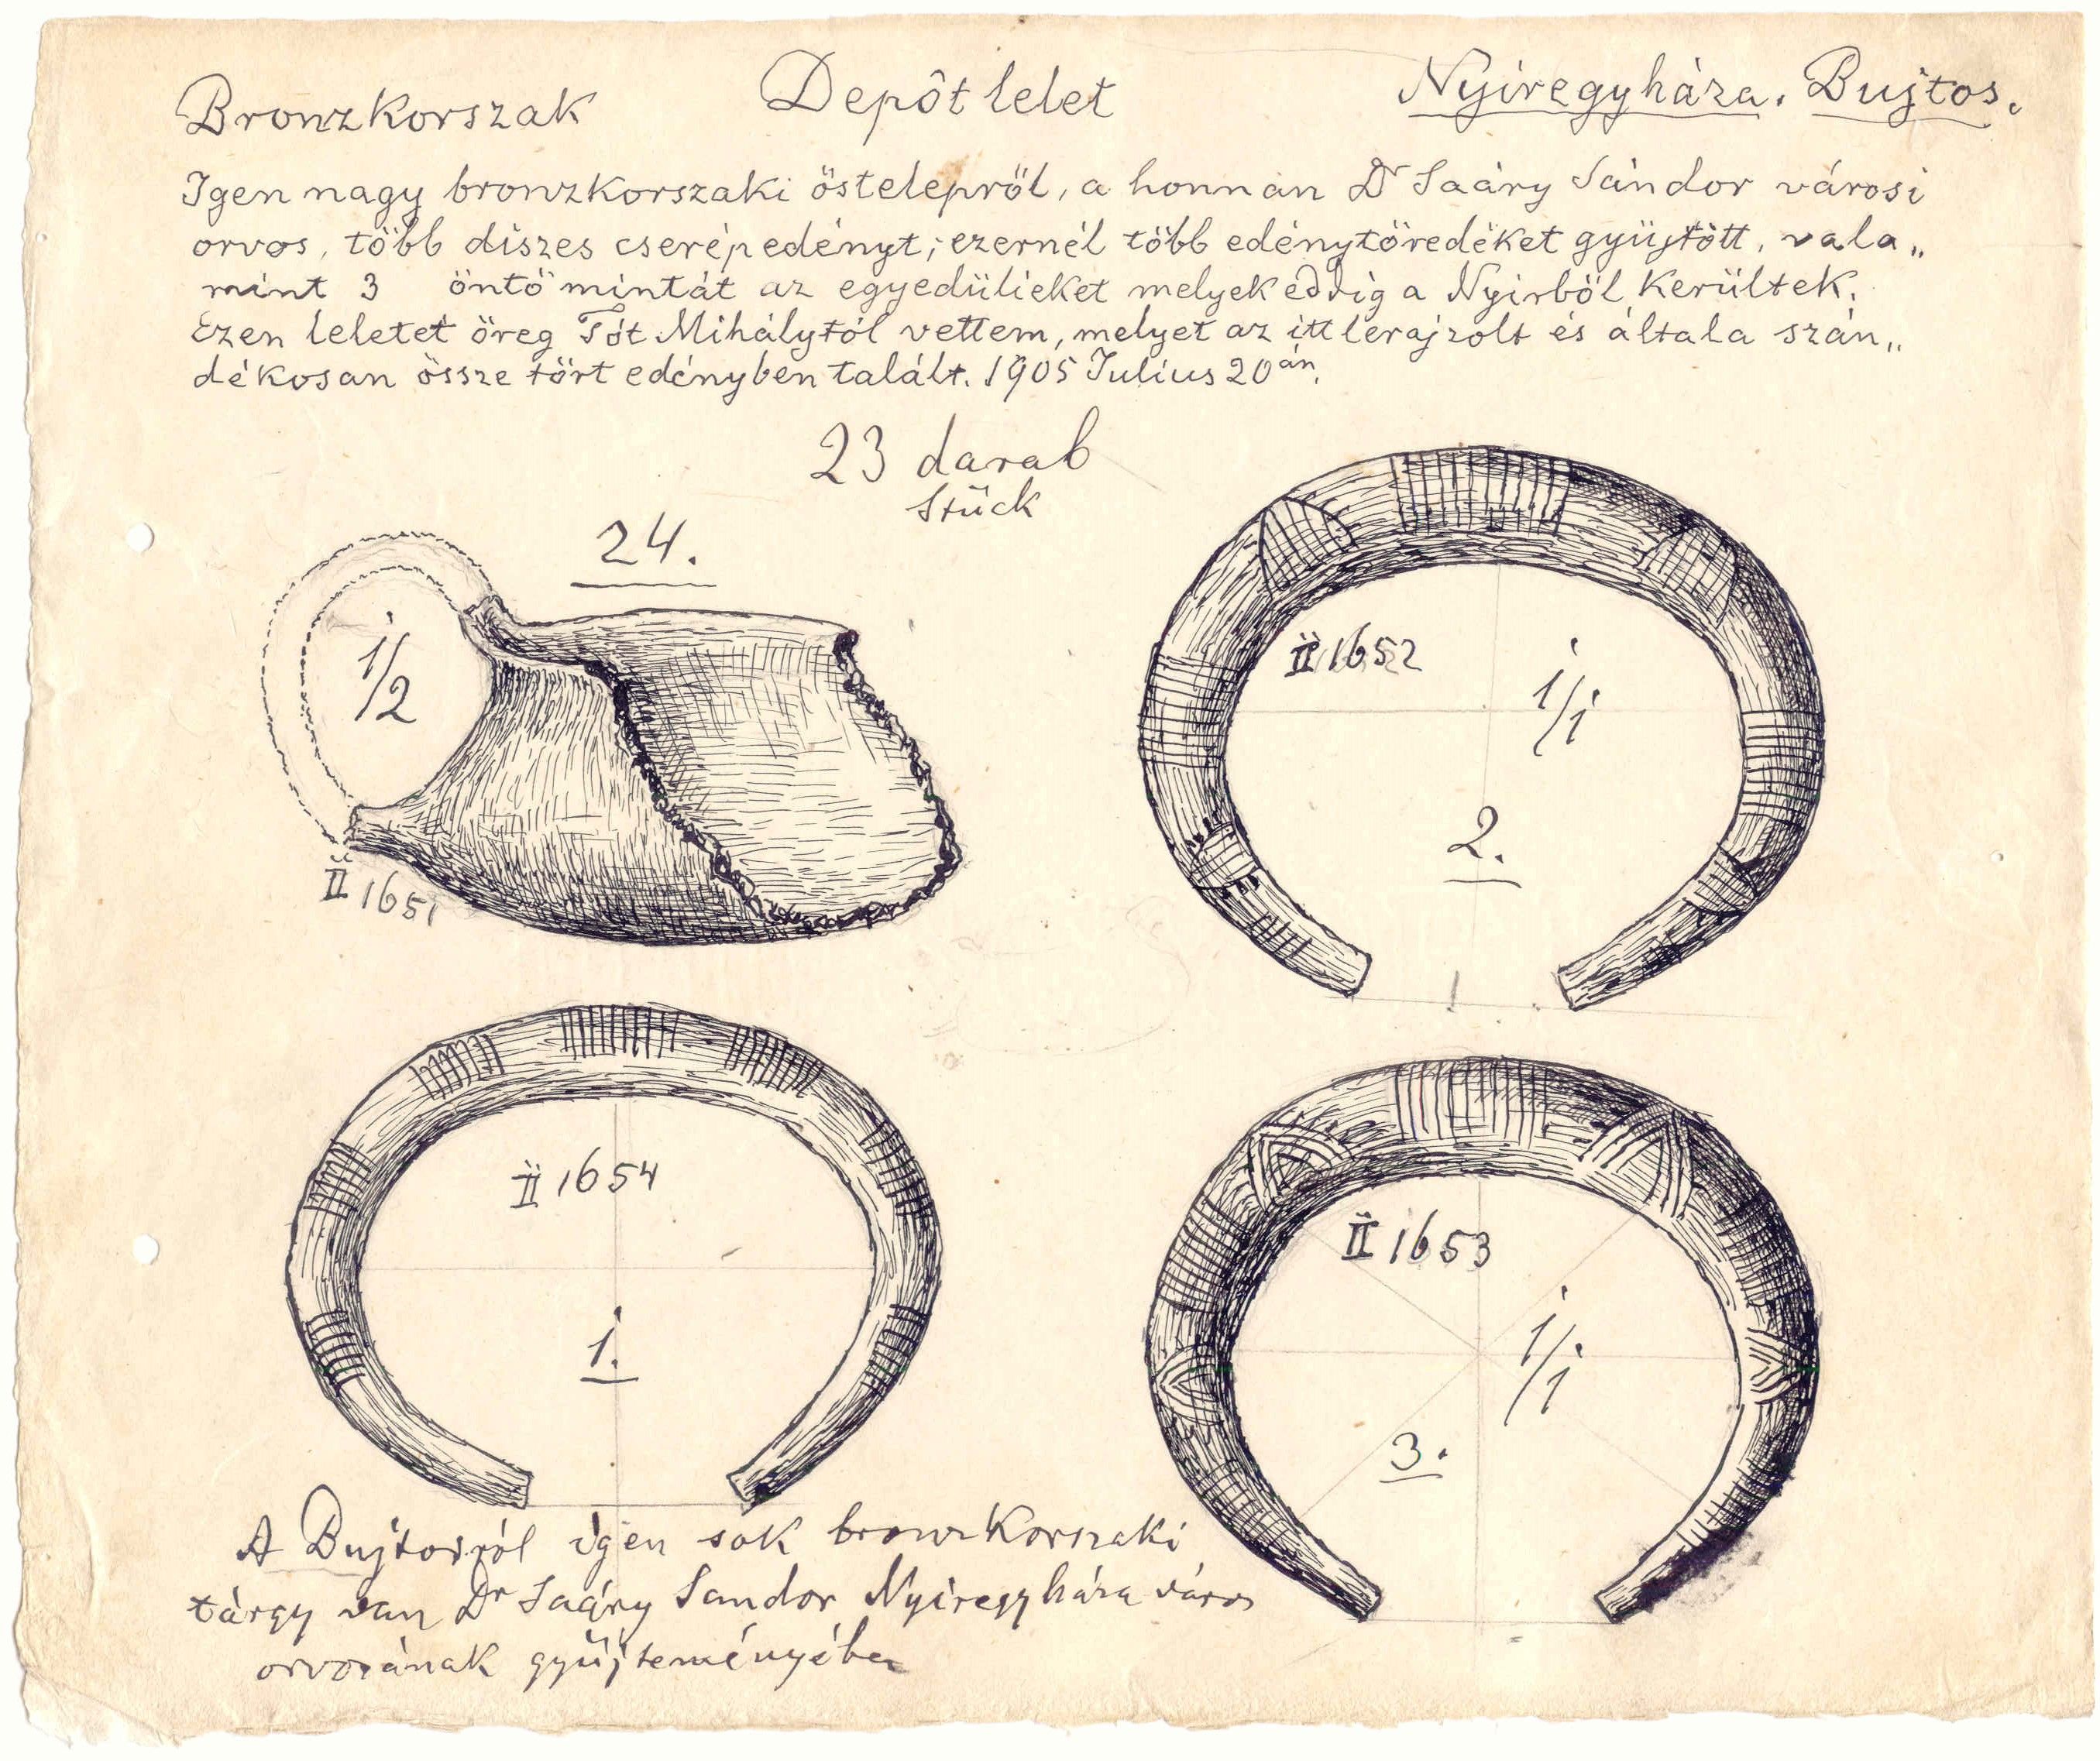 Bronzkorszak Depôt lelet Nyiregyháza. Bujtos.
Igen nagy bronzkorszaki östelepröl, a honnan Dr Saáry Sándor városi
orvos, több diszes cserépedényt, ezernél több edénytöredéket gyüjtött, vala„
mint 3 öntö mintát az egyedülieket melyek eddig a Nyirböl kerültek.
Ezen leletet öreg Tót Mihálytól vettem, melyet az itt lerajzolt és általa szán„
dékosan össze tört edényben talált. 1905 Julius 20án.
23 darab
Stück
24.
1/2
II 1651
II 1652
1/1
2.
II 1654
1.
II 1653
1/1
3.
A Bujtosról igen sok bronzkorszaki
tárgy van Dr Saáry Sandor Nyiregyháza város
orvosának gyüjteményében